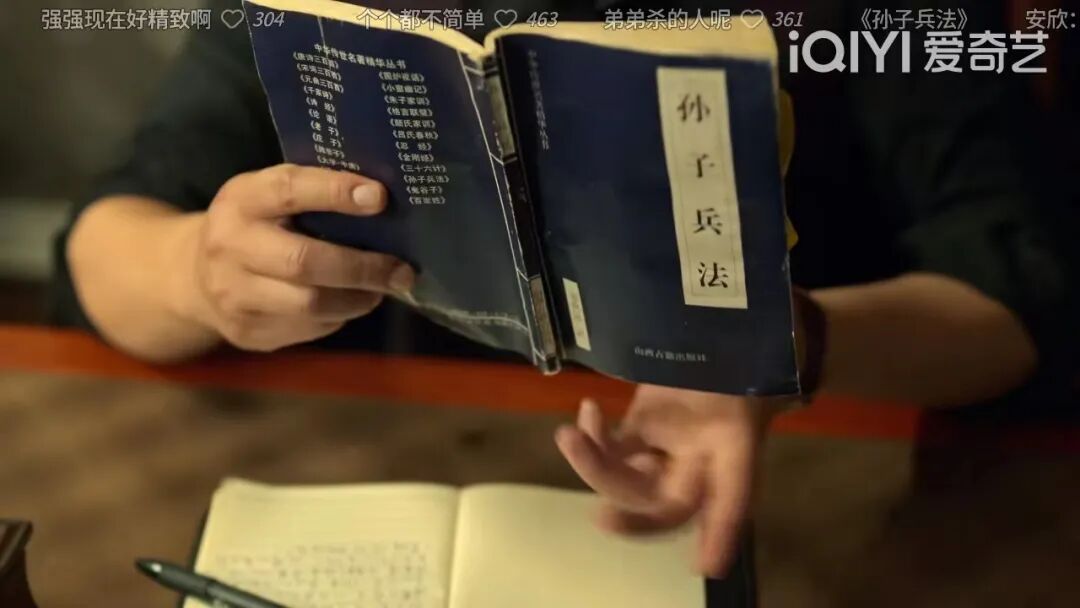 强强现在好精致啊 ♡ 304 个个都不简单 ♡ 463 弟弟杀的人呢 ♡ 361 《孙子兵法》 安欣:
iQIYI 爱奇艺
中华传世名著精华丛书
《唐诗三百首》
《宋词三百首》
《元曲三百首》
《千家诗》
《诗经》
《论语》
《老子》
《庄子》
《韩非子》
《大学·中庸》
《围炉夜话》
《小窗幽记》
《朱子家训》
《格言联璧》
《颜氏家训》
《吕氏春秋》
《忍经》
《金刚经》
《三十六计》
《孙子兵法》
《鬼谷子》
《百家姓》
中华传世名著精华丛书
孙子兵法
山西古籍出版社